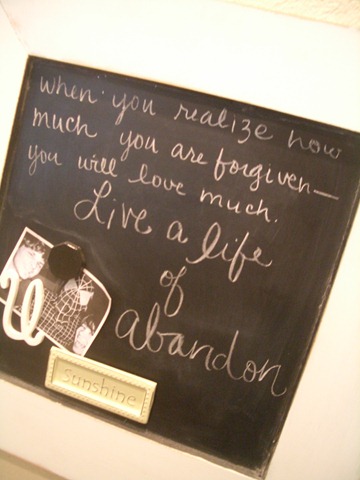 when you realize how
much you are forgiven—
you will love much.
Live a life
of
abandon
U
sunshine